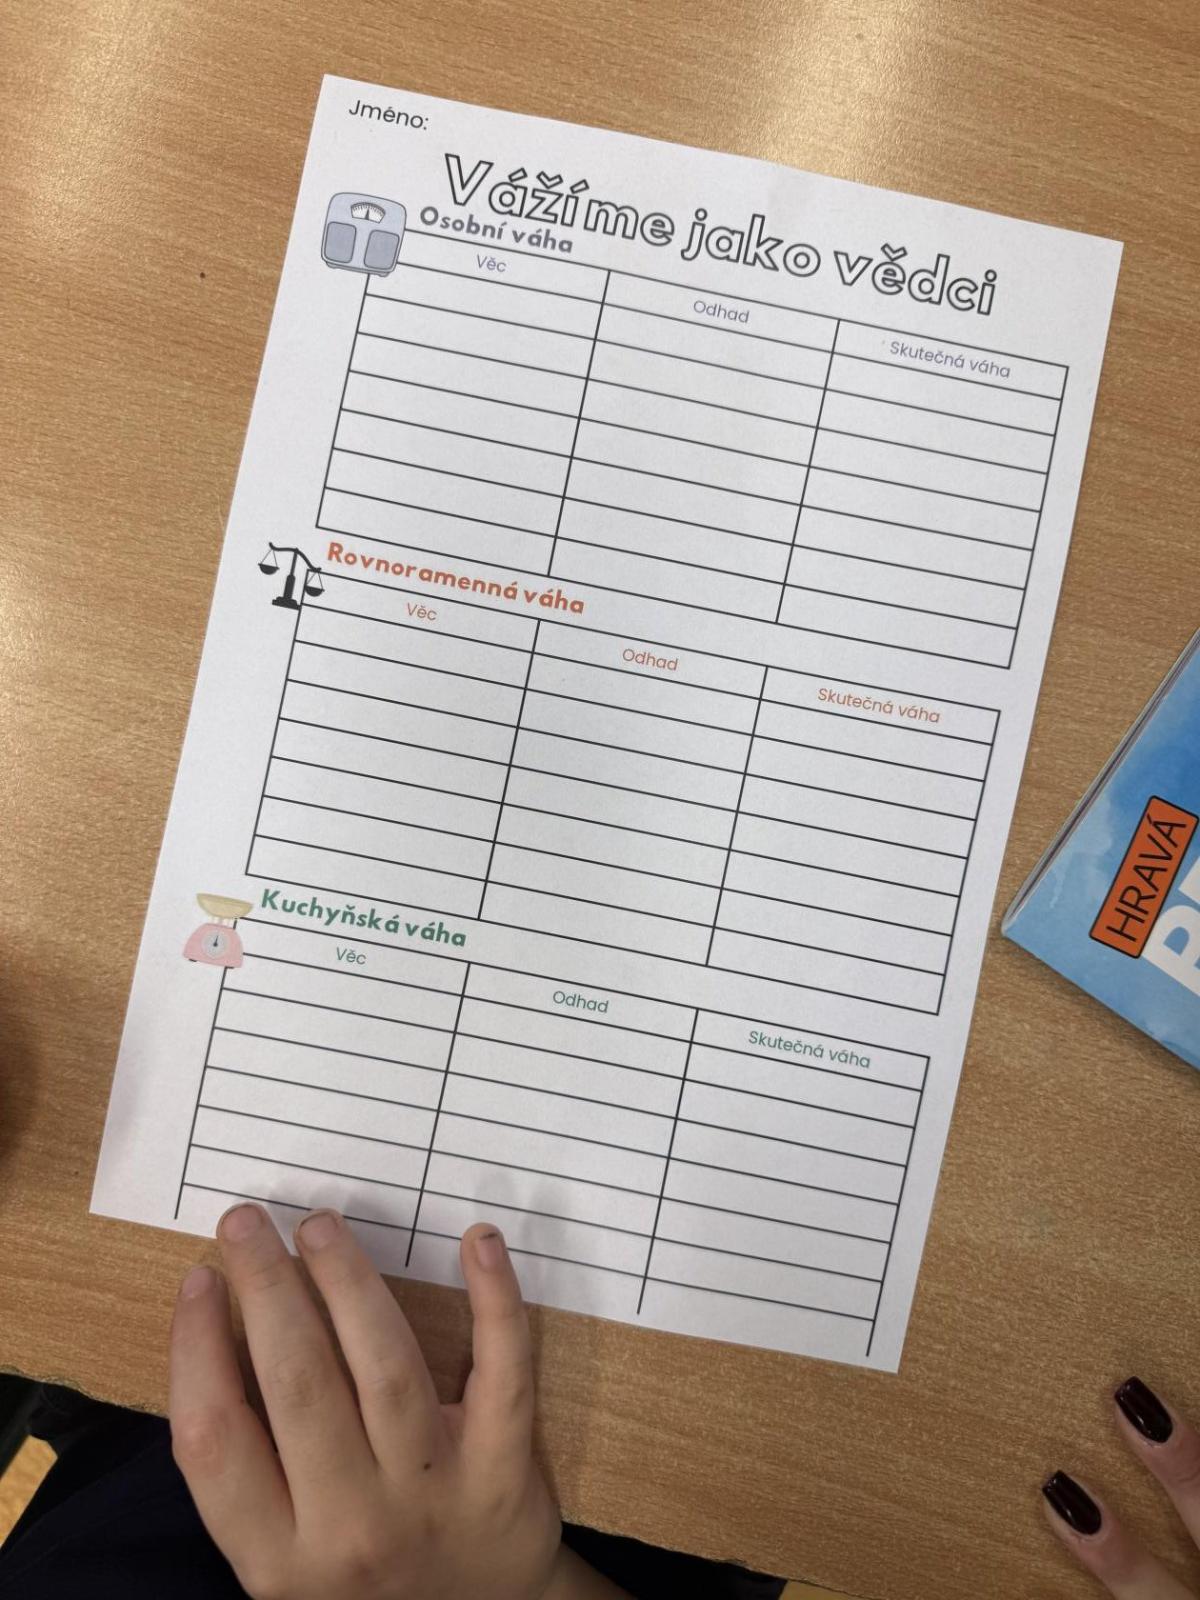 Jméno:
Vážíme jako vědci
Osobní váha
Věc Odhad Skutečná váha
Rovnoramenná váha
Věc Odhad Skutečná váha
Kuchyňská váha
Věc Odhad Skutečná váha
HRAVÁ